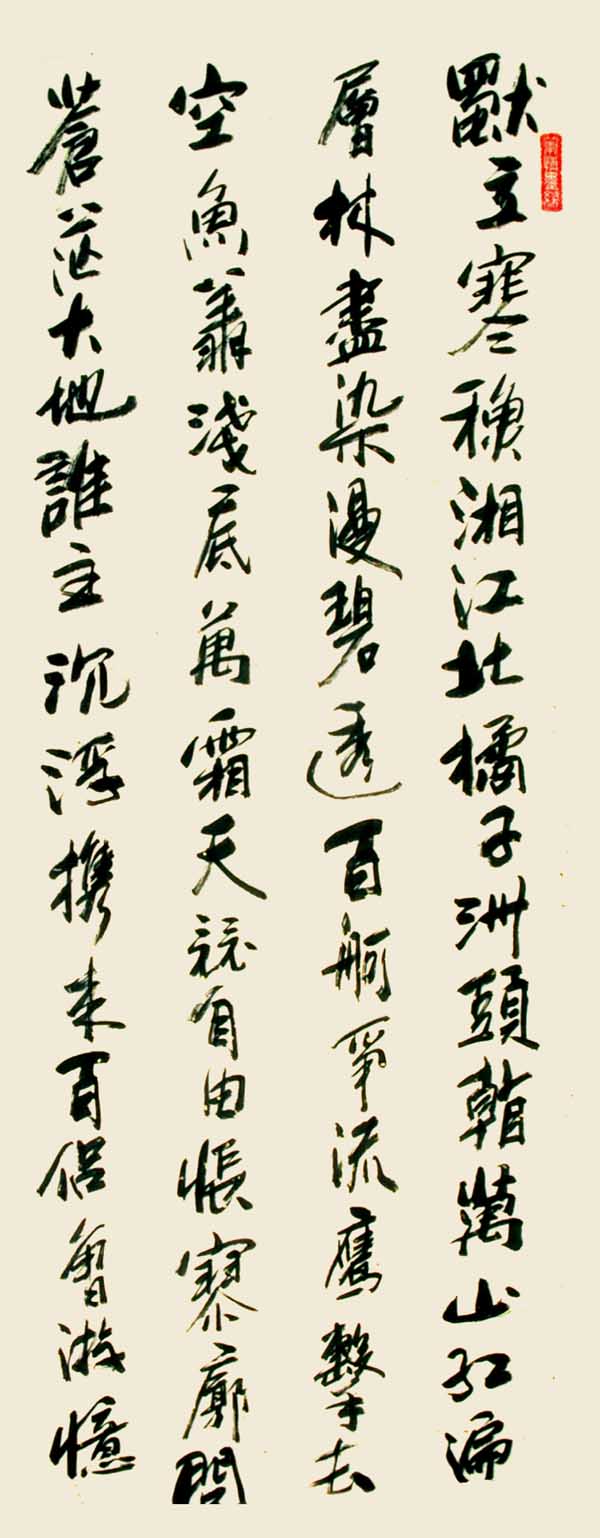 獨立寒秋湘江北橘子洲頭看萬山紅遍
層林盡染漫碧透百舸爭流鷹擊長
空魚翔淺底萬霜天競自由悵寥廓問
蒼茫大地誰主沉浮携來百侶曾游憶